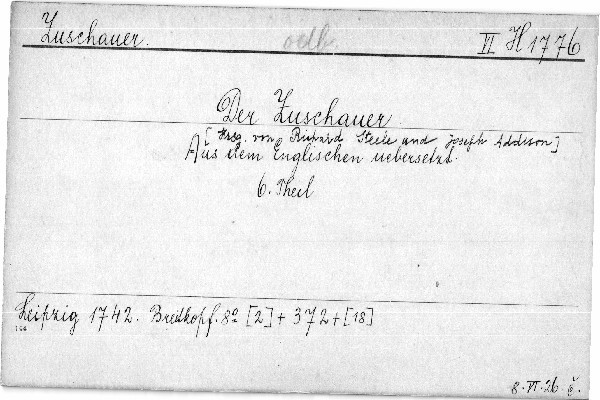 Zuschauer.
odb.
VI H 1776
Der Zuschauer.
[Hrsg. von Richard Steele und Joseph Addison]
Aus dem Englischen uebersetzt.
6. Theil
Leipzig 1742. Breitkopf. 8º [2] + 372 + [18]
8. VI. 26